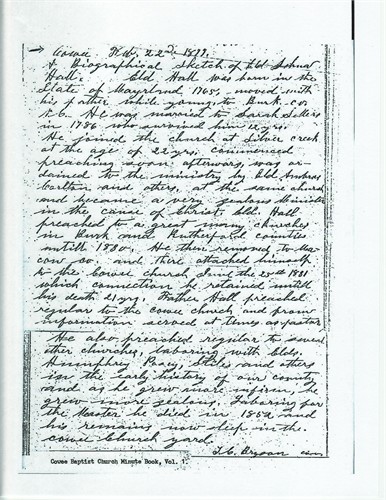 → Cowee Feb. 22nd 1899.
A Biographical Sketch of Eld Joshua
Hall. Eld Hall was born in the
State of Mayrland 1765, moved with
his father while young, to Burk co
N.C. He was married to Sarah Sellers
in 1786 who survived him 12 yrs.
He joined the church at Silver creek
at the age of 22 yrs. commenced
preaching soon afterwords, was or-
dained to the ministry by Eld Ambros
Carlton and others, at the same church
and became a very zealous Minister
in the cause of Christ. Eld. Hall
preached to a great many churches
in Burk and Rutherford counties
untill 1830. He then removed to Ma-
cow co. and there attached himself
to the Cowee church June the 25th 1831
which connection he retained untill
his death 21 yrs. Father Hall preached
regular to the cowee church and from
information served at times as pastor
He also preached regular to several
other churches, laboring with Elds.
Humphrey Posey, Stiles and others
in the early history of our county
and as he grew more infirm he
grew more zealous. Laboring for
the Master he died in 1852 and
his remains now sleep in the
cowee Church yard.
Bryson com
Cowee Baptist Church Minute Book, Vol. 1.